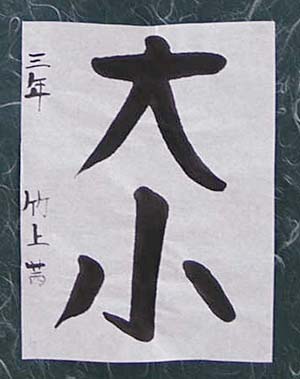 大小
三年 竹上